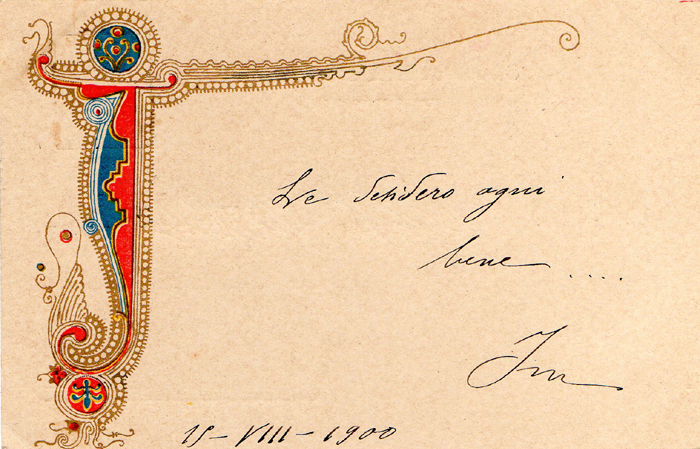 Le desidero ogni
bene ....
15-VIII-1900